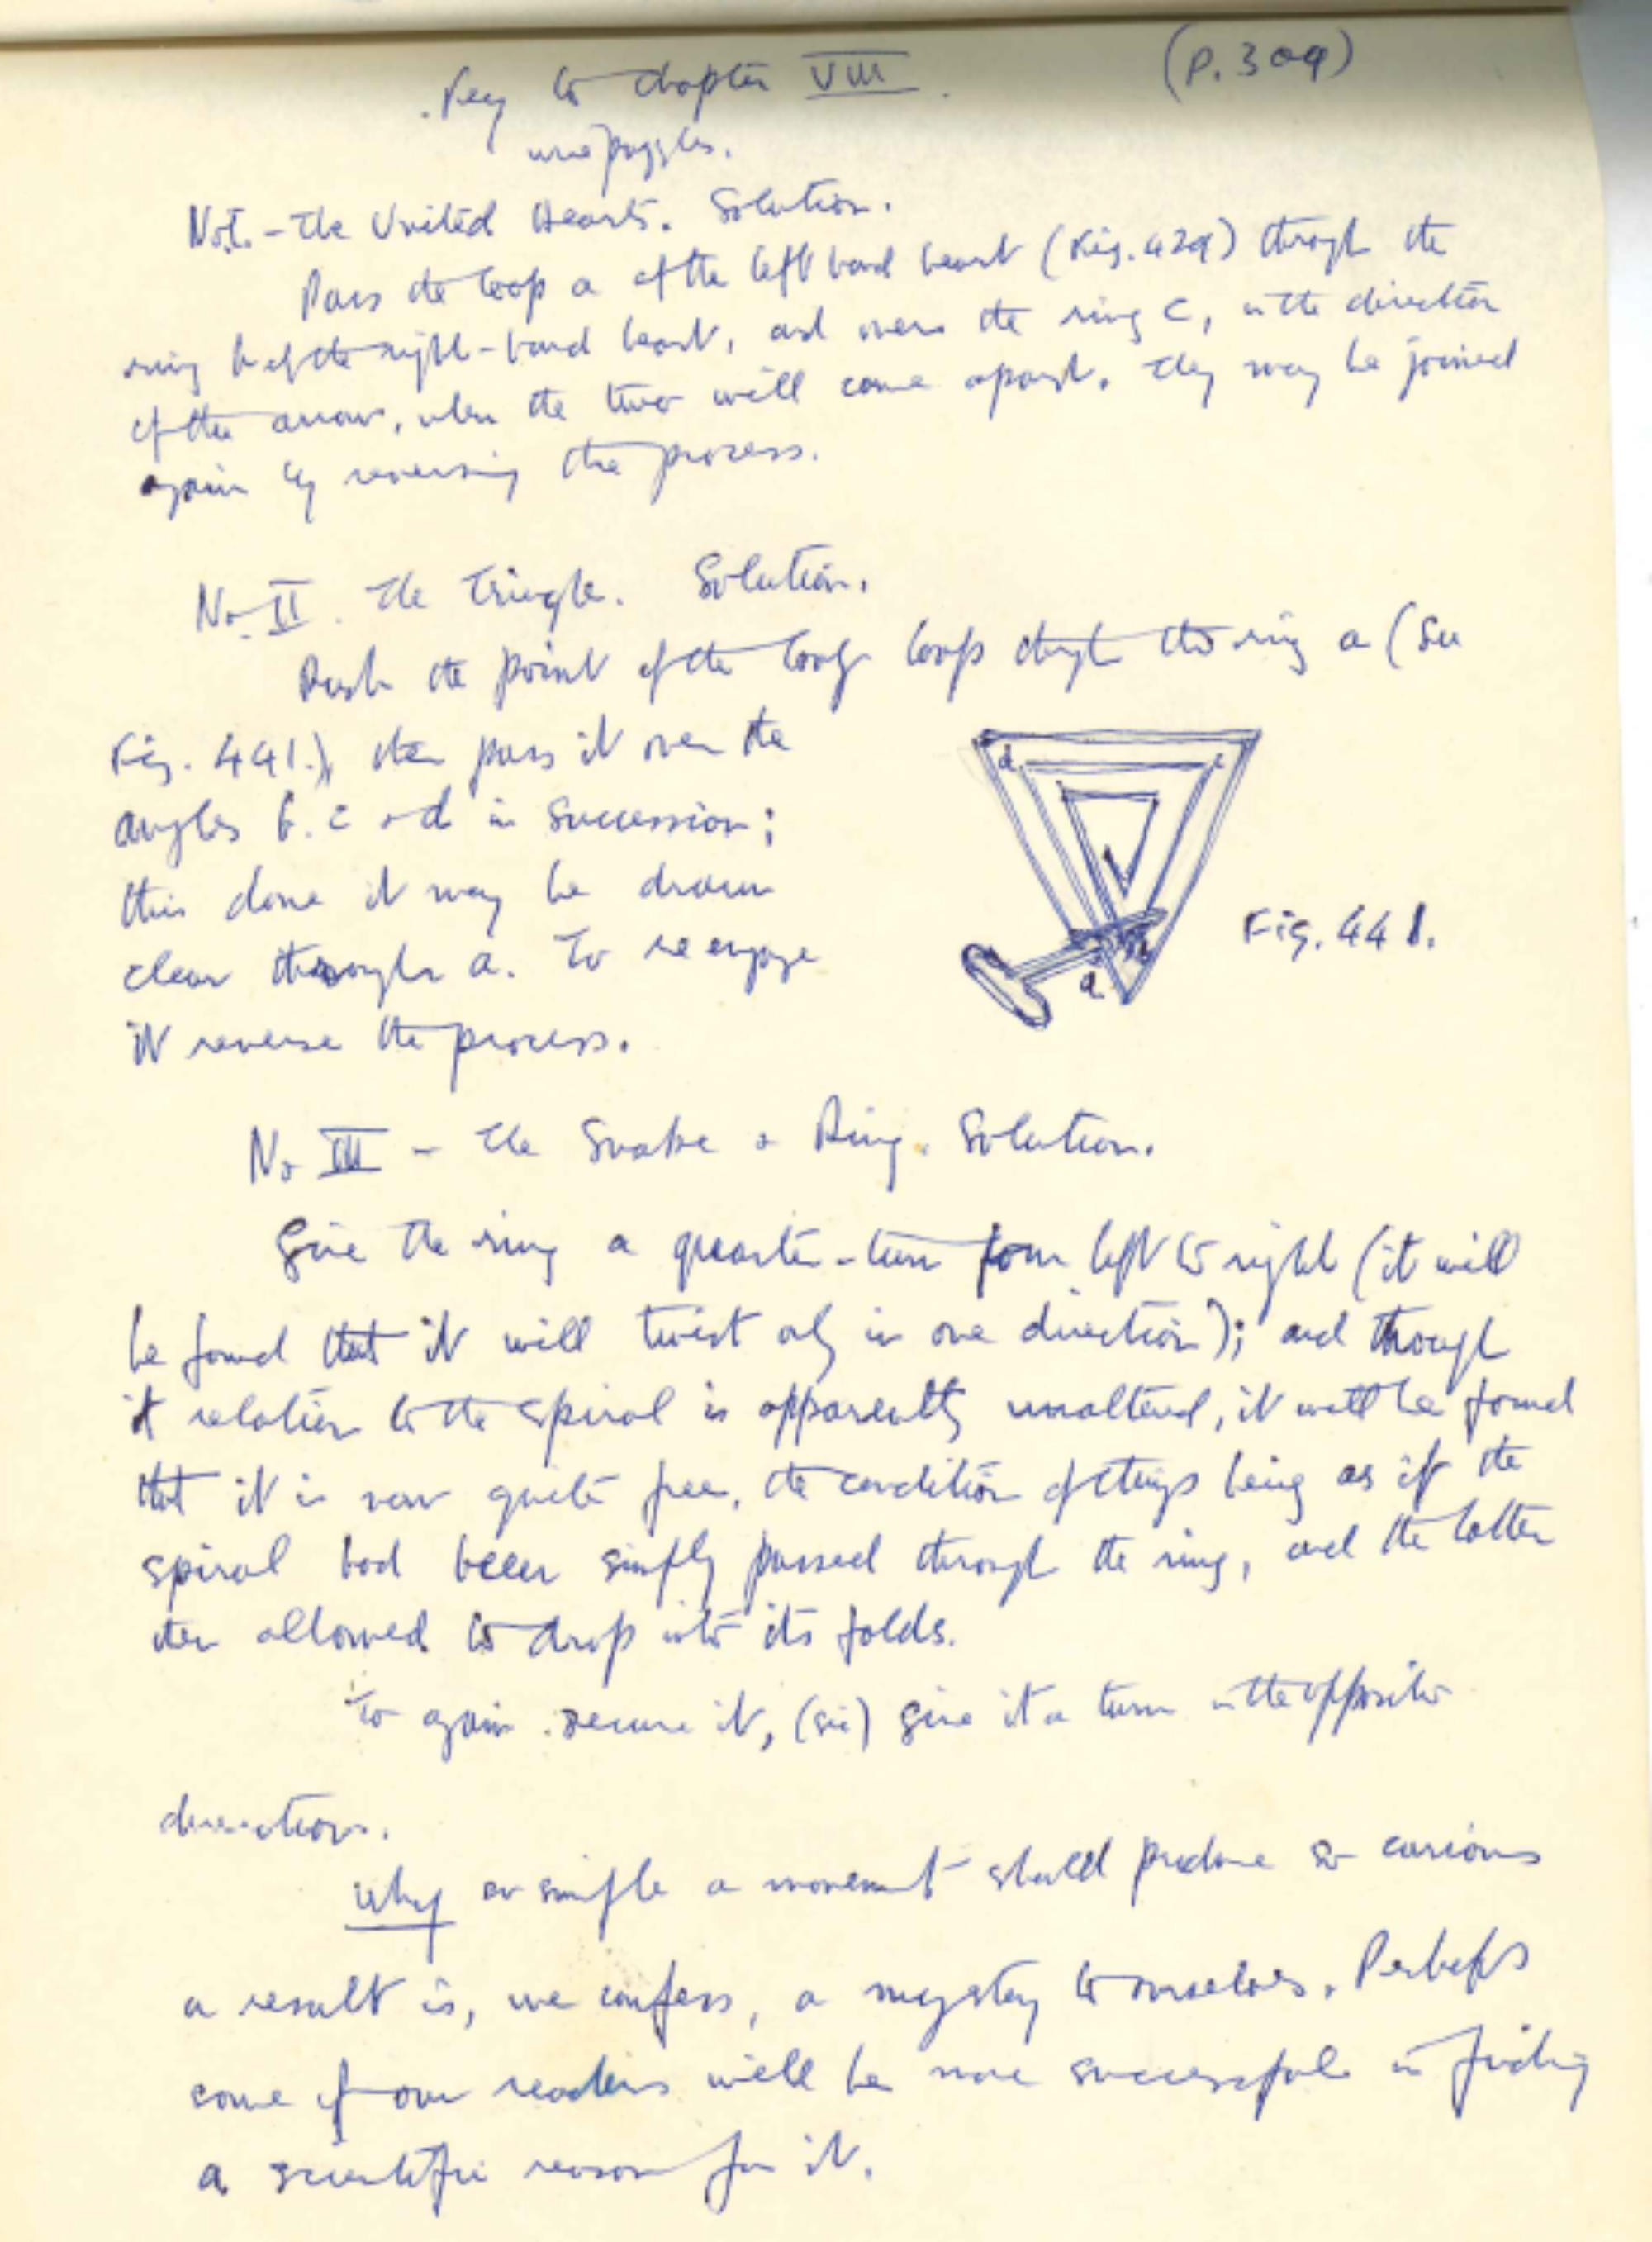 Key to Chapter VIII. (P. 309)
Wire puzzles.
No. I. - The United Hearts. Solution.
Pass the loop a of the left hand heart (Fig. 429) through the
ring b of the right-hand heart, and over the ring c, in the direction
of the arrow, when the two will come apart. They may be joined
again by reversing the process.
No. II. The Triangle. Solution.
Push the point of the long loop through the ring a (See
Fig. 441.), then pass it over the
angles b. c & d in succession;
this done it may be drawn
clear through a. To re engage
it reverse the process.
d c
b
a
Fig. 441.
No III - The Snake & Ring. Solution.
Give the ring a quarter-turn from left to right (it will
be found that it will twist only in one direction); and though
it relation to the spiral is apparently unaltered, it will be found
that it is now quite free, the condition of things being as if the
spiral had been simply passed through the ring, and the latter
then allowed to drop into its folds.
To again secure it, (sic) give it a turn in the opposite
direction.
Why so simple a movement should produce so curious
a result is, we confess, a mystery to ourselves. Perhaps
some of our readers will be more successful in finding
a scientific reason for it.